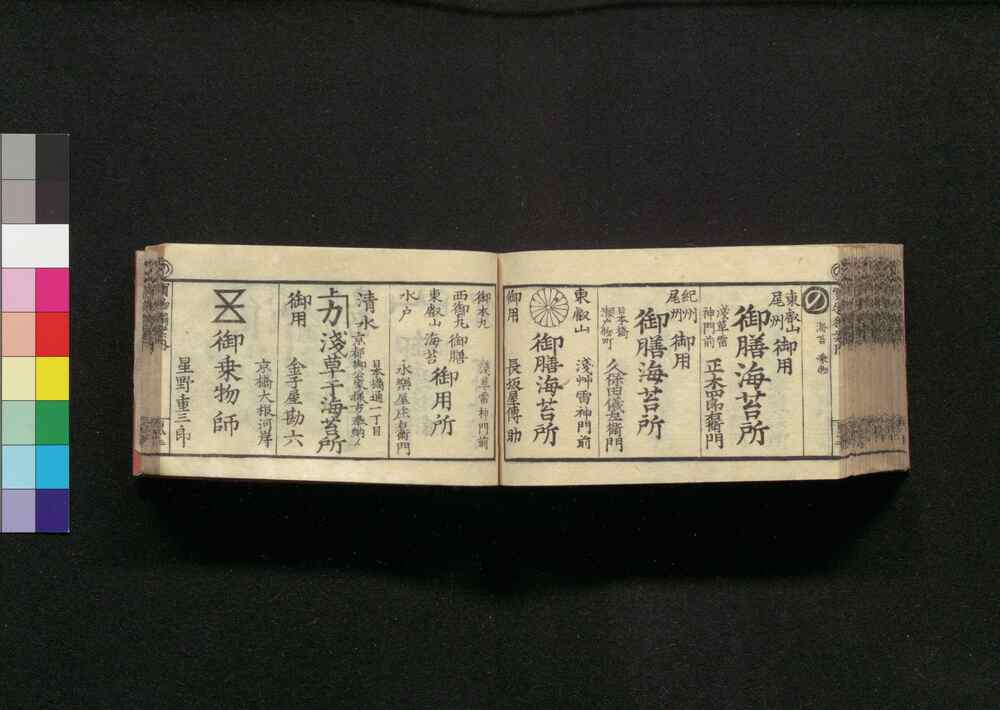 の
海苔 乗物
東叡山
尾州
御用
御膳海苔所
浅草雷
神門前
正木四郎右衛門
紀州
尾州
御用
御膳海苔所
日本橋
久保田儀右衛門
東叡山
淺艸雷神門前
御膳海苔所
御用
長坂屋傳助
御本丸
西御丸
東叡山
水戸
御膳
海苔
御用所
淺草雷神門前
永樂屋庄右衛門
清水
上方
淺草干海苔所
御用
日本橋通一丁目
金子屋勘六
京橋大根河岸
御乗物師
星野重三郎